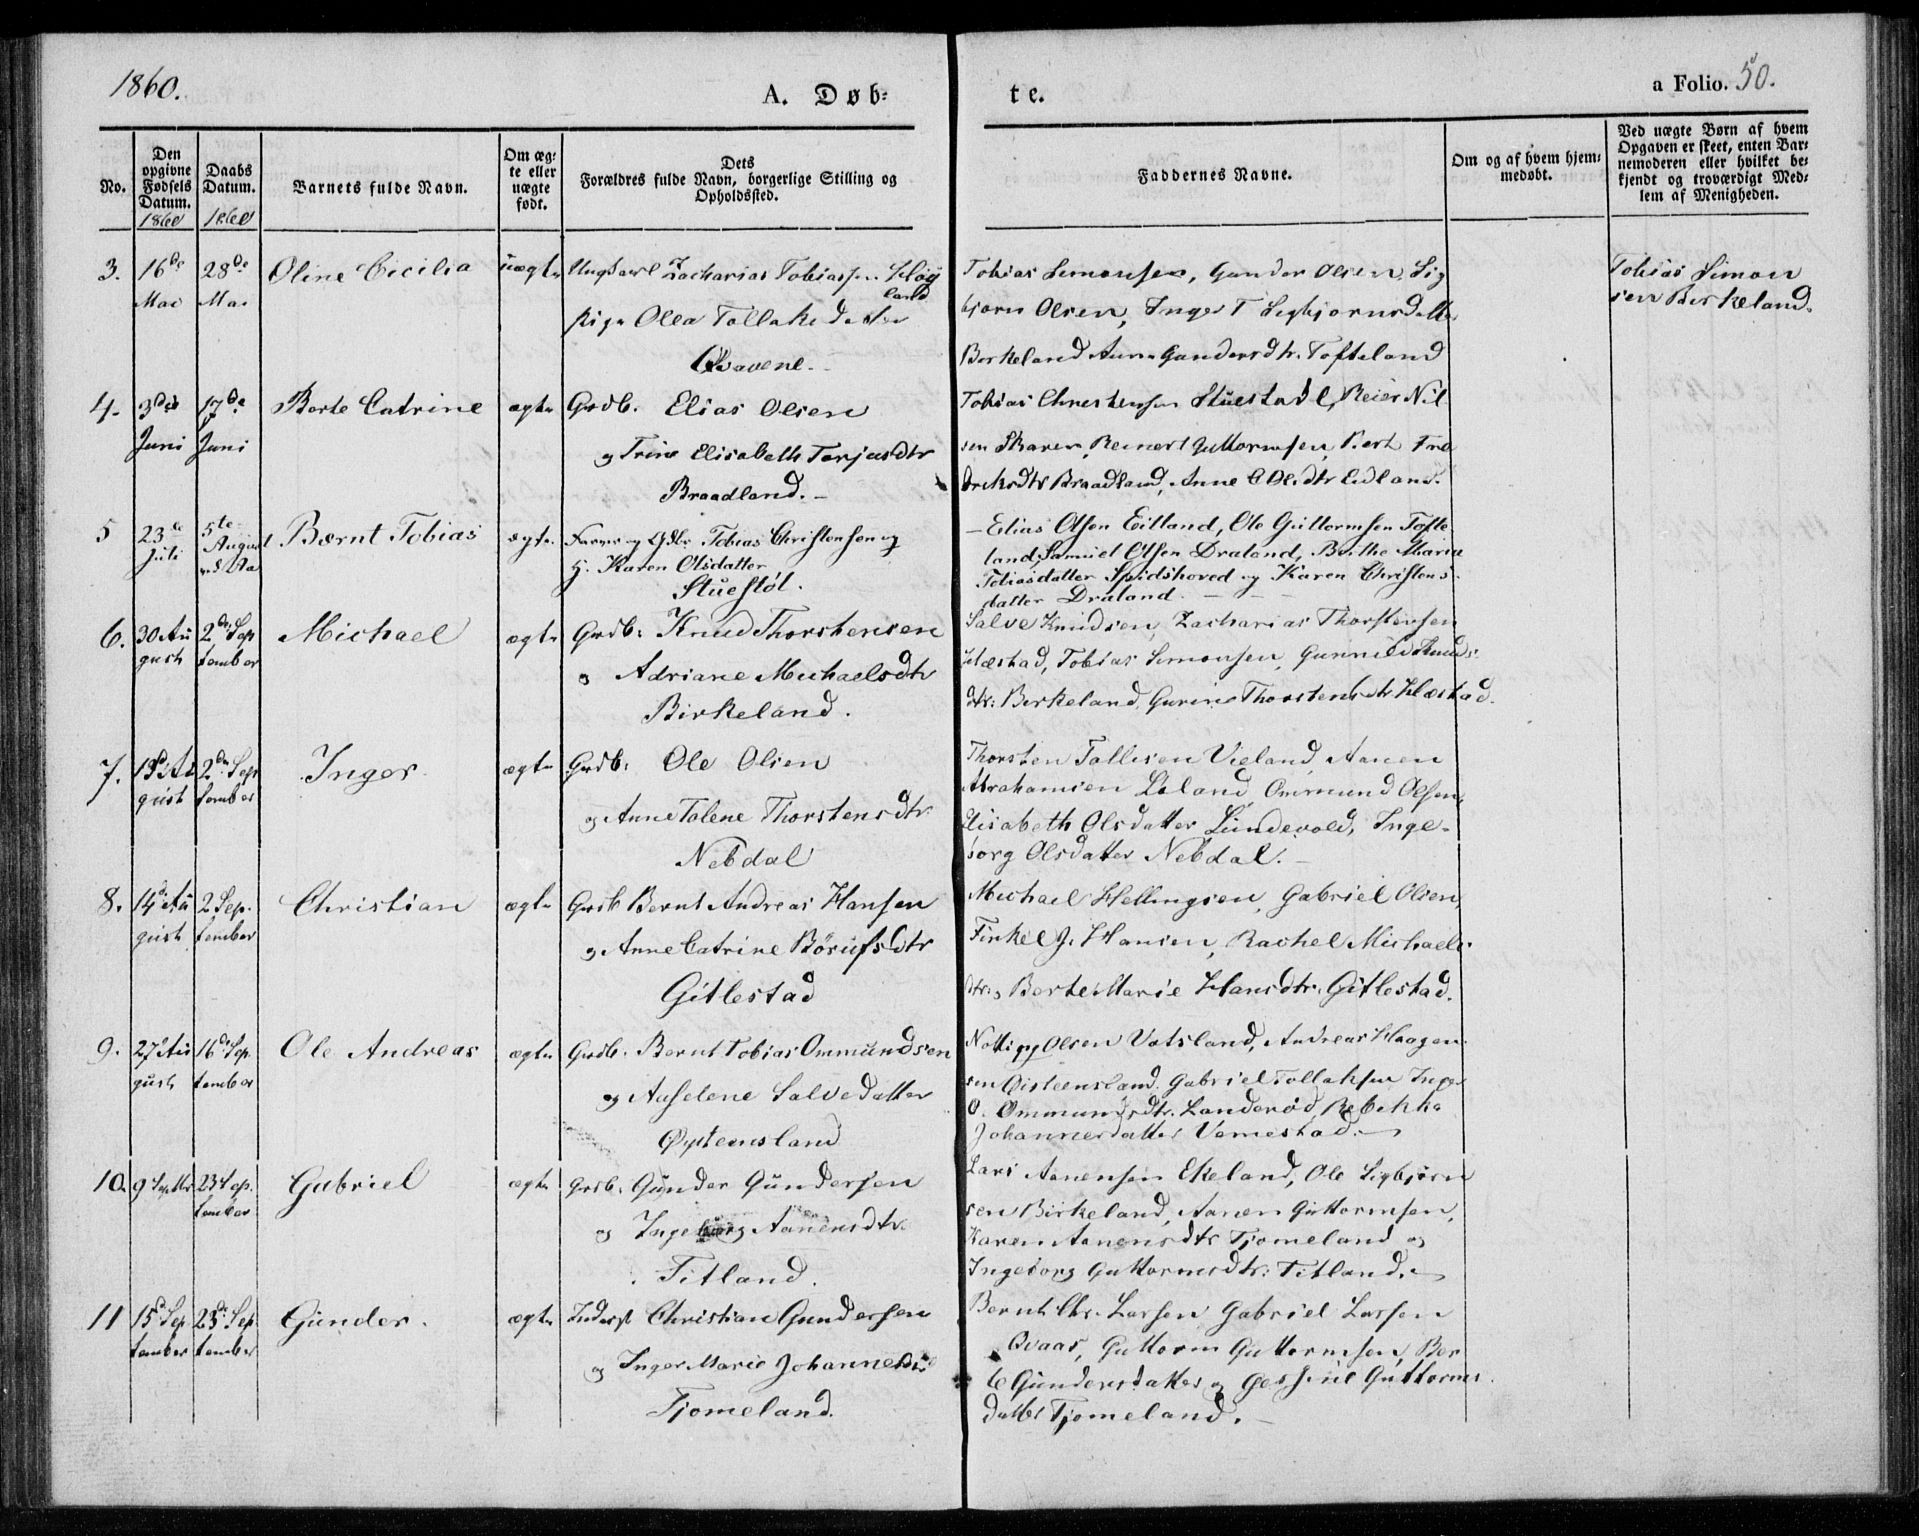 1860.
A. Døb-
te.
a Folio. 50.
No.
Den
opgivne
Fødsels
Datum.
1860
Daabs
Datum.
1860
Barnets fulde Navn.
Om æg-
te eller
uægte
født.
Dets
Forældres fulde Navn, borgerlige Stilling og
Opholdssted.
Faddernes Navne.
Om og af hvem hjem-
medøbt.
Ved uægte Børn af hvem
Opgaven er skeet, enten Bar-
nemoderen eller hvilket be-
kjendt og troværdigt Med-
lem af Menigheden.
3.
16de
Mai
28de
Mai
Oline Cicilia
uægte
Ungkarl Zacharias Tobiassen Høy
land
pige Olea Tollaksdatter
Tobias Simonsen, Gunder Olsen, Sig
bjørn Olsen, Inger T Sigbjørnsdatter
Birkeland Anne Gundersdtr. Tofteland
Tobias Simon
sen Birkeland.
4.
3die
Juni
17de
Juni
Berte Catrine
ægte
Grdb. Elias Olsen
og Trine Elisabeth Terjesdtr
Braadland. -
Tobias Christensen Stuestøl, Reier Nil
sen Skarer, Reinert Guttormsen, Bert Fre
driksdtr Braadland, Anne C Olsdtr Eidland.
5
23de
Juli
5te
August
Bærnt Tobias
ægte
Farver og Gdbr Tobias Christensen og
H. Karen Olsdatter
Stuestøl.
- Elias Olsen Eitland, Ole Guttormsen Tofte
land, Samuel Olsen Draland, Birthe Maria
Tobiasdatter Spidshoved og Karen Christens-
datter Draland. -
6.
30 Au
gust
2den Sep
tember
Michael
ægte
Grdb: Knud Thorstensen
og Adriane Michaelsdtr
Birkeland.
Salve Knudsen, Zacharias Thorstensen
Hæstad, Tobias Simonsen, Gunnild Knuds-
dtr: Birkeland, Gurine Thorstensdtr Hæstad.
7.
13de Au
gust
2den Sep
tember
Inger
ægte
Grdb: Ole Olsen
og Anne Tolene Thorstensdtr
Nebdal
Thorsten Tollisen Vieland, Aanen
Abrahamsen Leland, Ommund Olsen,
Elisabeth Olsdatter Lundevold, Inge-
borg Olsdatter Nebdal. -
8.
14de Au
gust
2 Sep.
tember
Christian
ægte
Grdb Bernt Andreas Hansen
og Anne Catrine Børufsdtr
Gitlestad
Michael Hellingsen, Gabriel Olsen,
Finkel J. Hansen, Rachel Michaels
dtr., Berte Marie Hansdtr. Gitlestad.
9.
27 Au
gust
16de Sep.
tember
Ole Andreas
ægte
Grdb. Bernt Tobias Ommundsen
og Aselene Salvedatter
Øysteinsland
Olsen Vatsland, Andreas Haagen
sen Øisteensland. Gabriel Tollaksen Inger
O. Ommundsdtr. Landerød, Rebekka
Johannesdatter Vemestad. -
10.
9 Septbr
23 Sep.
tember
Gabriel
ægte
Grdb. Gunder Gundersen
og Ingeborg Aanensdtr.
Titland.
Lars Aanensen Ekeland, Ole Sigbjørn
sen Birkeland, Aanen Guttormsen,
Karen Aanensdtr Tjomeland og
Ingeborg Guttormsdtr: Titland. -
11
15de Sep
tember
23de Sep
tember
Gunder.
ægte
Inderst Christian Gundersen
og Inger Marie Johannesdtr
Tjomeland.
Bernt Chr. Larsen Gabriel Larsen
Qvaas, Guttorm Guttormsen, Ber
te Gundersdatter og Gesine Guttorms
datter Tjomeland. -